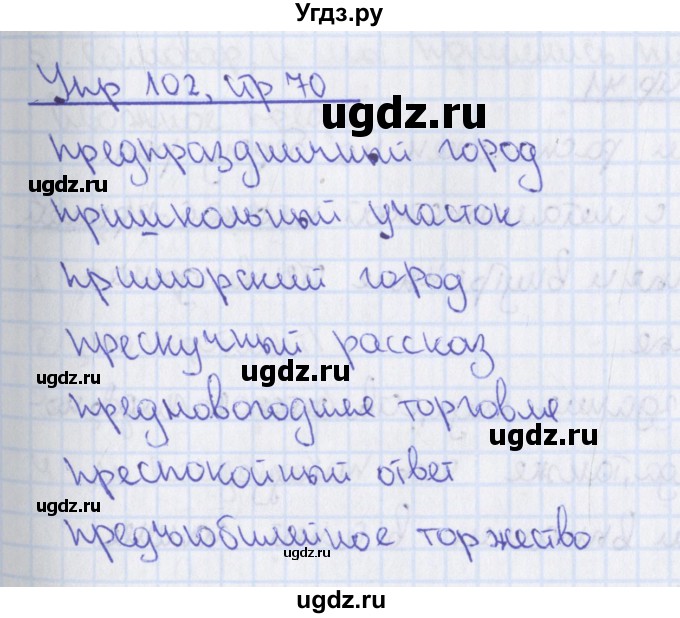 Угдз.ру
Упр 102, стр 70
ugdz.ru
предпраздничный город
ugdz.ru
пришкольный участок
ugdz.ru
приморский город
прескучный рассказ
ugdz.ru
ugdz.ru
предновогоднее торговля
ugdz.ru
преспокойный ответ
ugdz.ru
предъюбилейное торжество
ugdz.ru
ugdz.ru